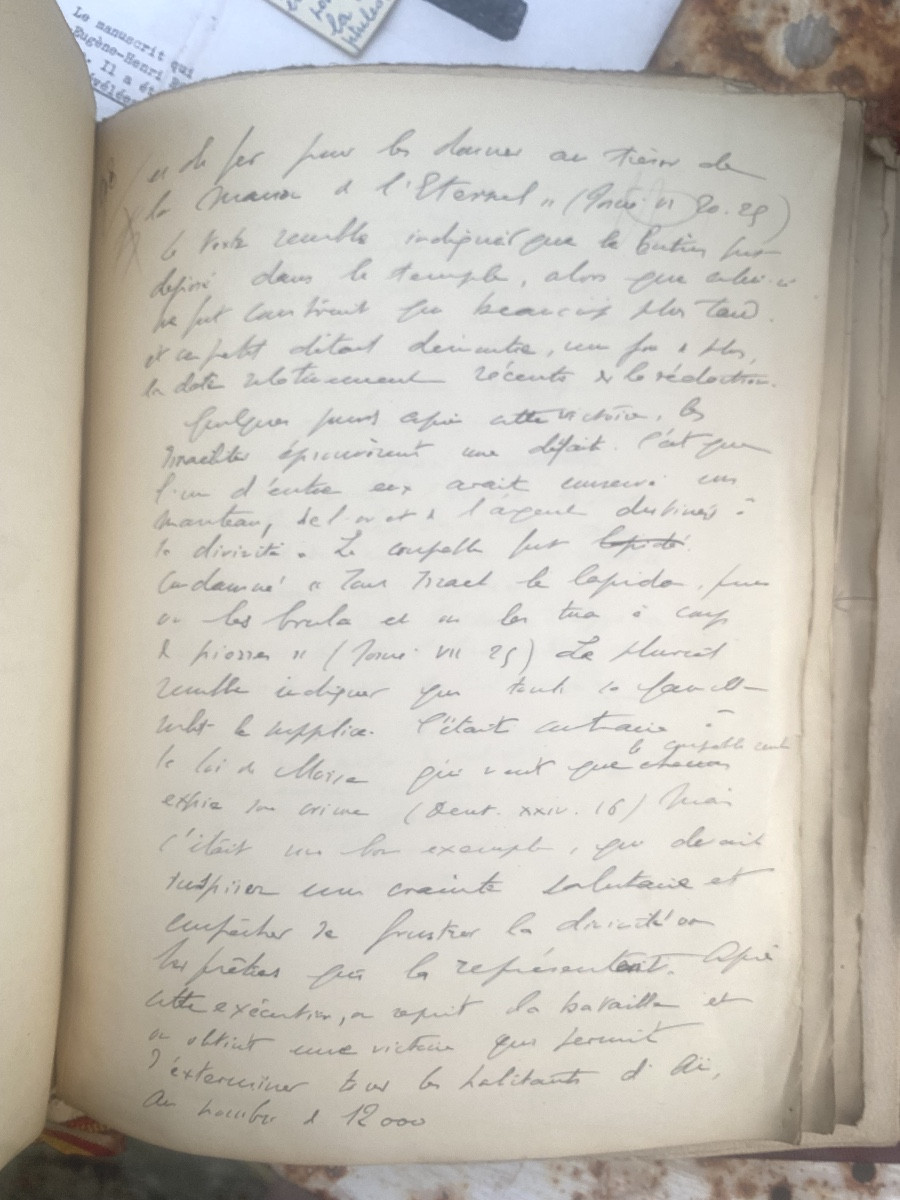 Le manuscrit qui
Eugène-Henri
Il a ét
la
et de fer pour les donner au trésor de
la maison de l'Eternel" (Josué VI 20.25)
Le texte semble indiquer que le butin fut
déposé dans le temple, alors que celui-ci
ne fut construit que beaucoup plus tard.
et ce petit détail démontre, une fois de plus,
la date relativement récente de la rédaction.
Quelques jours après cette victoire, les
Israélites éprouvèrent une défaite. C'est que
l'un d'entre eux avait conservé un
manteau, de l'or et de l'argent destinés à
la divinité. Le coupable fut lapidé
condamné "Tout Israël le lapida, puis
on les brula et on les tua à coup
de pierres" (Josué VII 25) Le pluriel
semble indiquer que toute sa famille
subit le supplice. C'était contraire à
la loi de Moïse qui veut que chacun
le coupable seul
expie son crime (Deut. XXIV. 16) Mais
c'était un bon exemple, qui devait
inspirer une crainte salutaire et
empêcher de frustrer la divinité ou
les prêtres qui la représentent. Après
cette exécution, on reprit la bataille et
on obtint une victoire qui permit
d'exterminer tous les habitants d'Aï,
au nombre de 12000